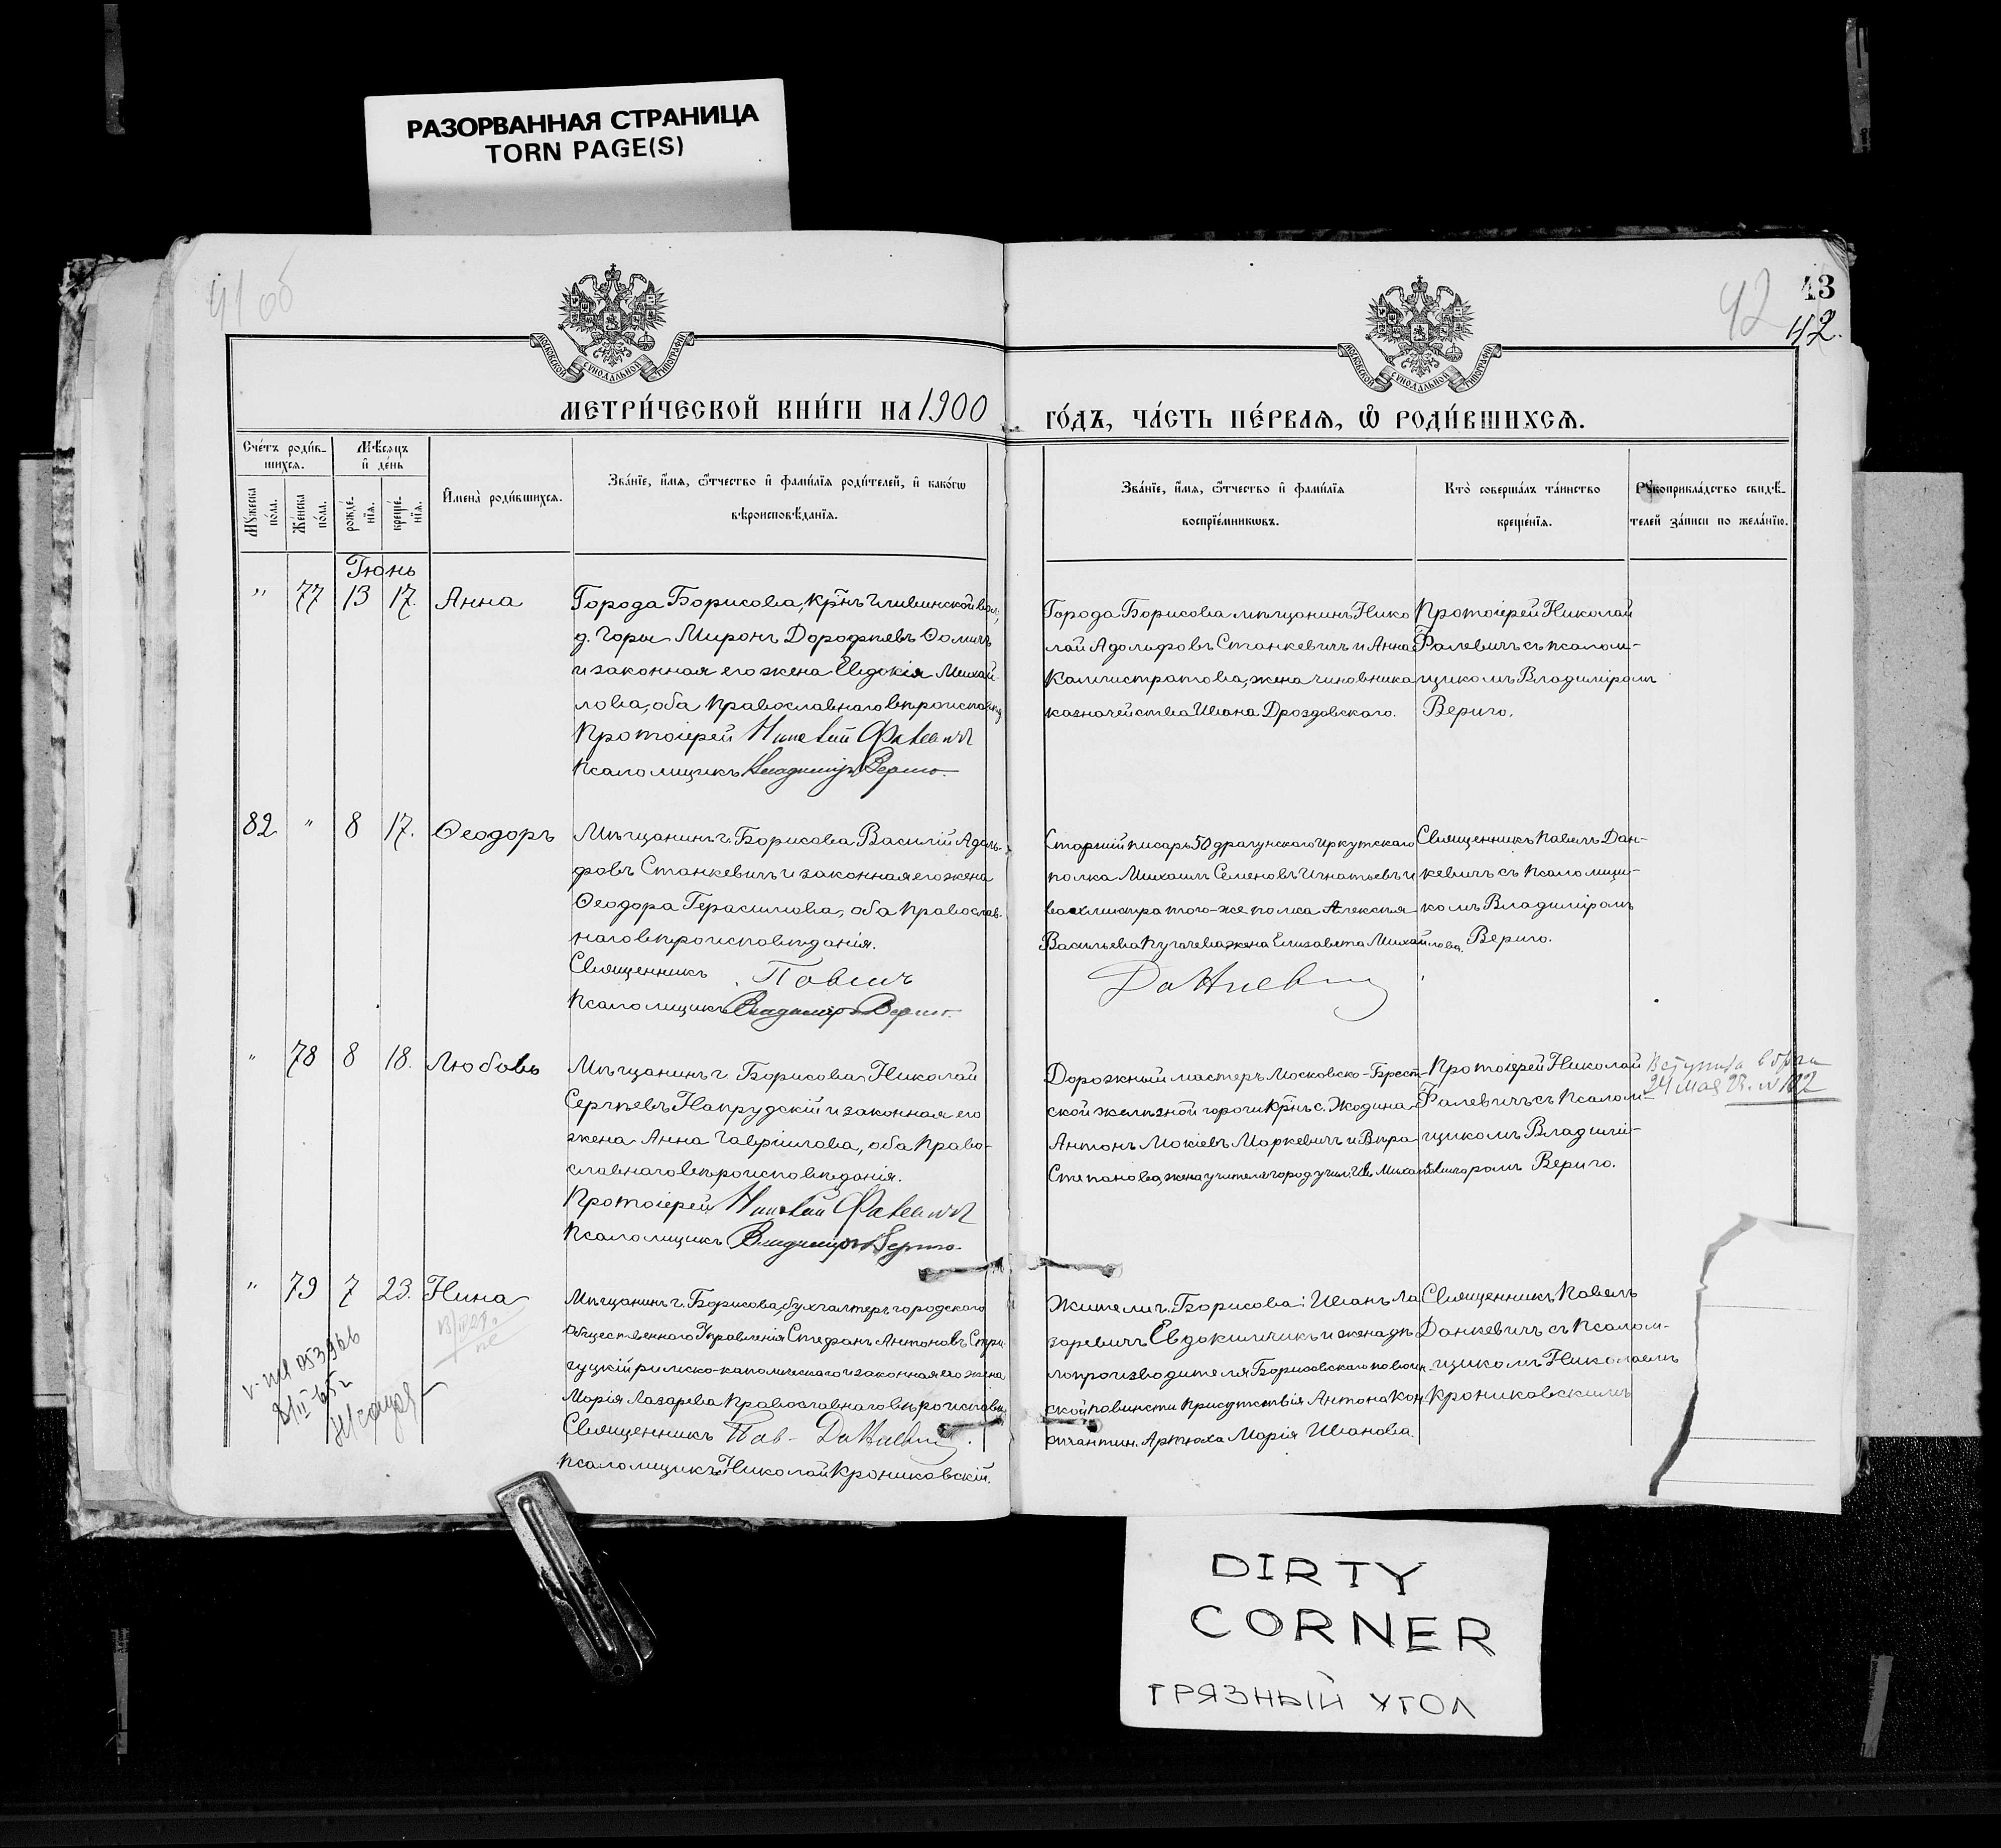 РАЗОРВАННАЯ СТРАНИЦА
TORN PAGE(S)
41 об
42
43
42.
МОСКОВСКОЙ СѴНОДАЛЬНОЙ ТИПОГРАФІИ
МОСКОВСКОЙ СѴНОДАЛЬНОЙ ТИПОГРАФІИ
МЕТРИ́ЧЕСКОЙ КНИ́ГИ НА 1900
ГО́ДЪ, ЧА́СТЬ ПЕ́РВАЯ, Ѽ РОДИ́ВШИХСѦ.
Сче́тъ роди́в-
шихся.
Мѣ́сяцъ
и҆ де́нь
Мꙋ́жеска по́ла.
Же́нска по́ла.
рожде́-нїѧ.
креще́-нїѧ.
И҆мена̀ роди́вшихся.
Зва́нїе, и҆́мя, ѻ҆́тчество и҆ фами́лїя роди́телей, и҆ како́гѡ
вѣроисповѣ́данїя.
Зва́нїе, и҆́мя, ѻ҆́тчество и҆ фами́лїя
воспрїе́мникѡвъ.
Кто̀ соверша́лъ та́инство
креще́нїя.
Рꙋкоприкла́дство свидѣ́-
телей за́писи по жела́нїю.
Іюнь
" 77 13 17. Анна
Города Борисова, крнъ Гливинской вол.,
д. Горы Миронъ Дорофѣевъ Ѳомичъ
и законная его жена Евдокія Михай-
лова, оба православнаго вѣроисповѣд
Протоіерей Николай Фалевичъ
Псаломщикъ Владиміръ Вериго.
Города Борисова мѣщанинъ Нико
лай Адольфовъ Станкевичъ и Анна
Каллистратова, жена чиновника
казначейства Ивана Дроздовскаго.
Протоіерей Николай
Фалевичъ съ псалом-
щикомъ Владиміромъ
Вериго.
82 " 8 17. Ѳеодоръ
Мѣщанинъ г. Борисова Василій Адоль-
фовъ Станкевичъ и законная его жена
Ѳеодора Герасимова, оба православ-
наго вѣроисповѣданія.
Священникъ Павелъ
Псаломщикъ Владиміръ Вериго.
Старшій писарь 50 драгунскаго Иркутскаго
полка Михаилъ Семеновъ Игнатьевъ и
вахмистра того-же полка Алексѣя
Васильева Пугачева жена Елизавета Михайлова.
Данкевичъ
Священникъ Павелъ Дан-
кевичъ съ Псаломщи-
комъ Владиміромъ
Вериго.
" 78 8 18. Любовь
Мѣщанинъ г. Борисова Николай
Сергѣевъ Напрудскій и законная его
жена Анна Гавріилова, оба Право-
славнаго вѣроисповѣданія.
Протоіерей Николай Фалевичъ
Псаломщикъ Владиміръ Вериго.
Дорожный мастеръ Московско-Брест-
ской желѣзной дороги крнъ с. Жодина
Антонъ Мокіевъ Маркевичъ и Вѣра
Степанова, жена учителя город. учил. Ив.
Протоіерей Николай
Фалевичъ съ Псалом-
щикомъ Владимі-
ромъ Вериго.
Вступила в брак
24 мая
" 79 7 23. Нина
Мѣщанинъ г. Борисова, бухгалтеръ городского
Общественнаго Управленія Стефанъ Антоновъ
римско-католическаго и законная его жена
Марія Лазарева Православнаго вѣроисповѣд
Священникъ Пав- Данкевичъ.
Псаломщикъ Николай Крониковскій.
Жители г. Борисова: Иванъ Ла
заревичъ Евдокимчикъ и жена дѣ
лопроизводителя Борисовскаго по воин-
ской повинсти Присутствія Антона Кон
стантин. Артюха Марія Иванова.
Священникъ Павелъ
Данкевичъ съ Псалом-
щикомъ Николаемъ
Крониковскимъ
DIRTY
CORNER
ГРЯЗНЫЙ УГОЛ